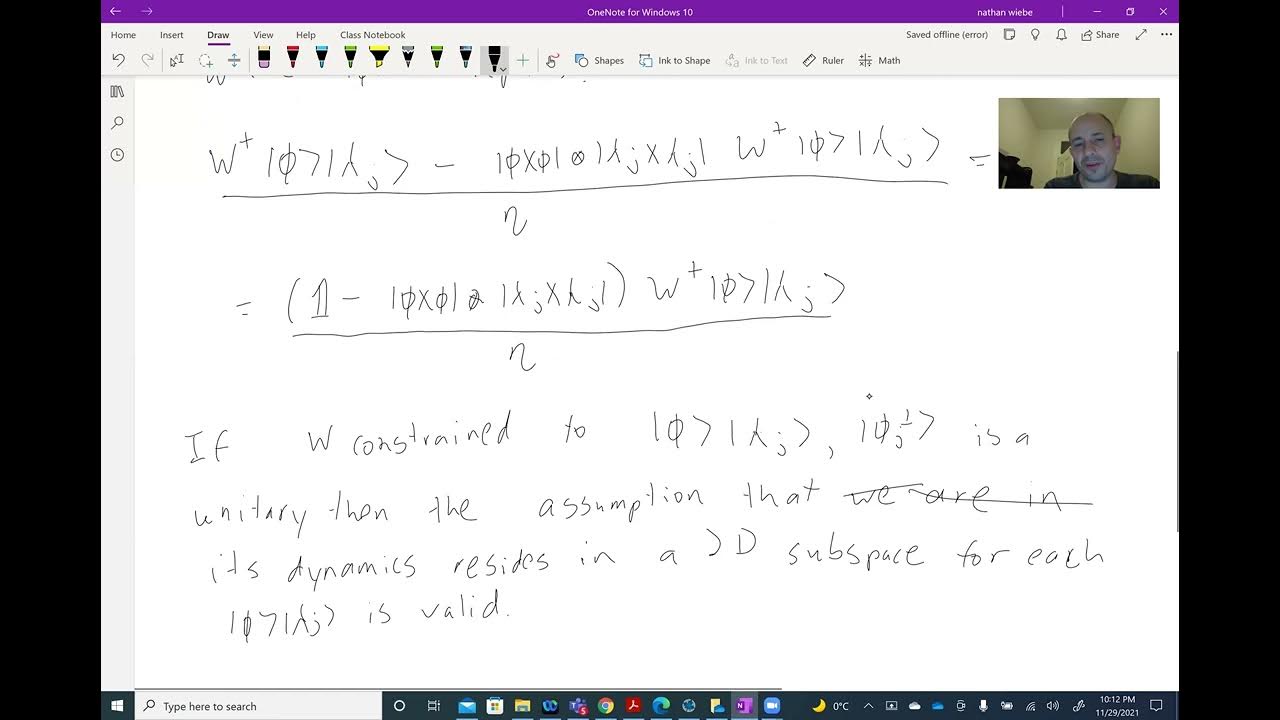 OneNote for Windows 10
nathan wiebe
Home Insert Draw View Help Class Notebook
Saved offline (error) Share
Shapes Ink to Shape Ink to Text Ruler Math
W† |φ>|λj> - |φXφ|⊗|λjXλj| W† |φ>|λj> =
η
= (𝟙 - |φXφ|⊗|λjXλj|) W†|φ>|λj>
η
If W constrained to |φ>|λj>, |φj⊥> is a
unitary then the assumption that we are in
its dynamics resides in a 2D subspace for each
|φ>|λj> is valid.
Type here to search
0°C
10:12 PM
11/29/2021